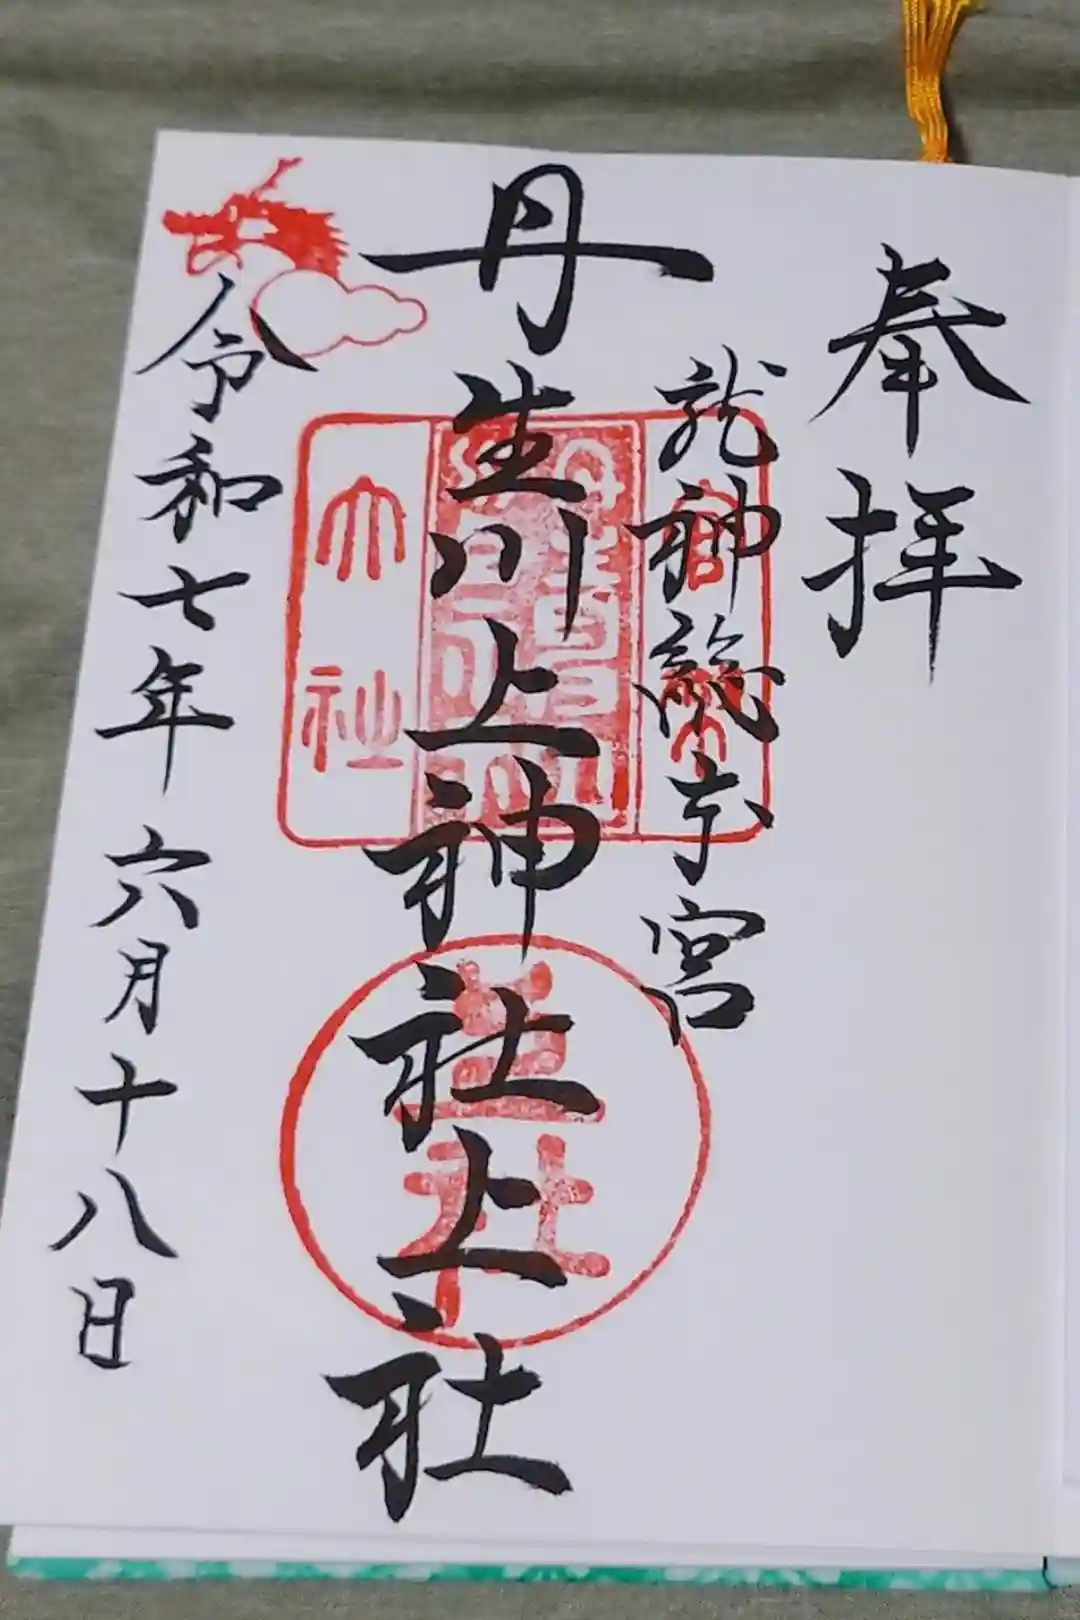 奉拝
龍神総本宮
丹生川上神社上社
令和七年六月十八日
大社